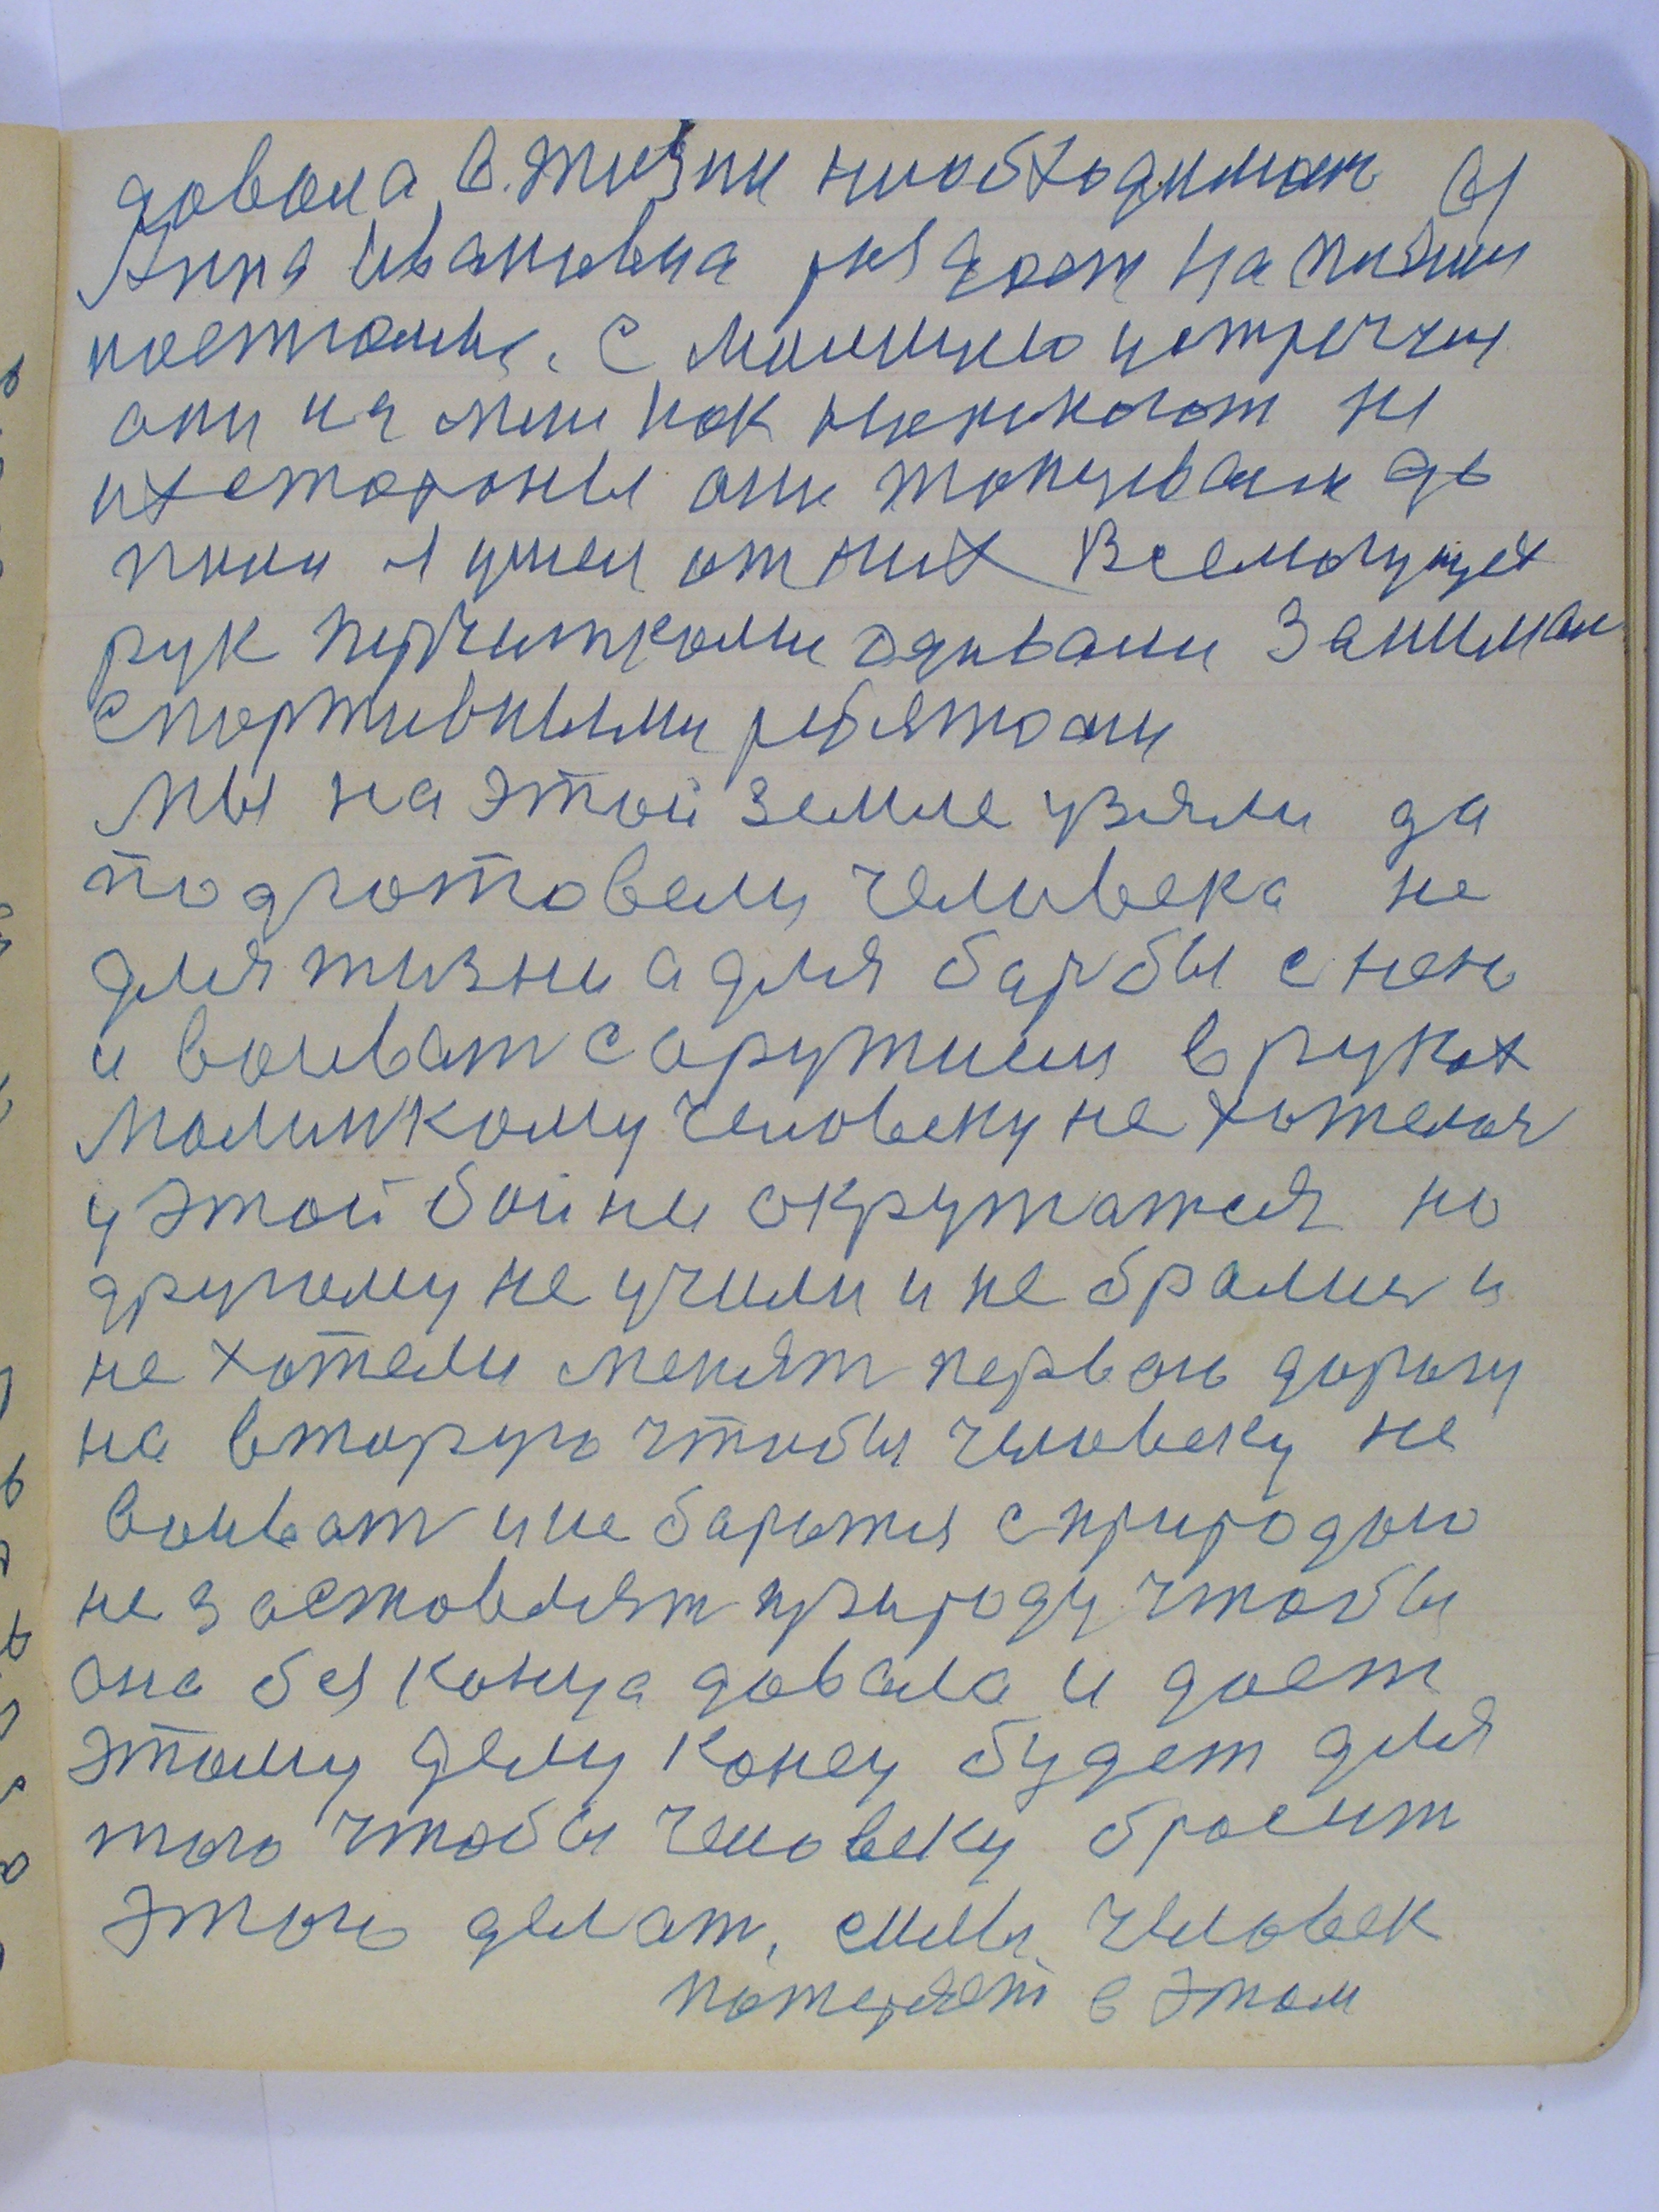 довола в жизни ниобходимая 61
Анна Ивановна
настоящ. С милицию устречи
они на мене как
их стороны они
я ушел от них Всемогущех
рук перчатками одевали Занимал
спортивными ребятами
мы на этой земле узяли да
подготовели человека не
для жизни а для барбы с нею
и воиват с оружием в руках
Молинкому человеку не хотелос
у этой бойни окружатся но
другому не учили и не бралис и
не хотели менят первою дорогу
на вторую чтобы человеку не
воиват и не баротся с природою
не застовлят природу чтобы
она без конца довала и дает
этому делу конец будет для
того чтобы человеку бросит
этою делат, силы человек
потеряет в этом